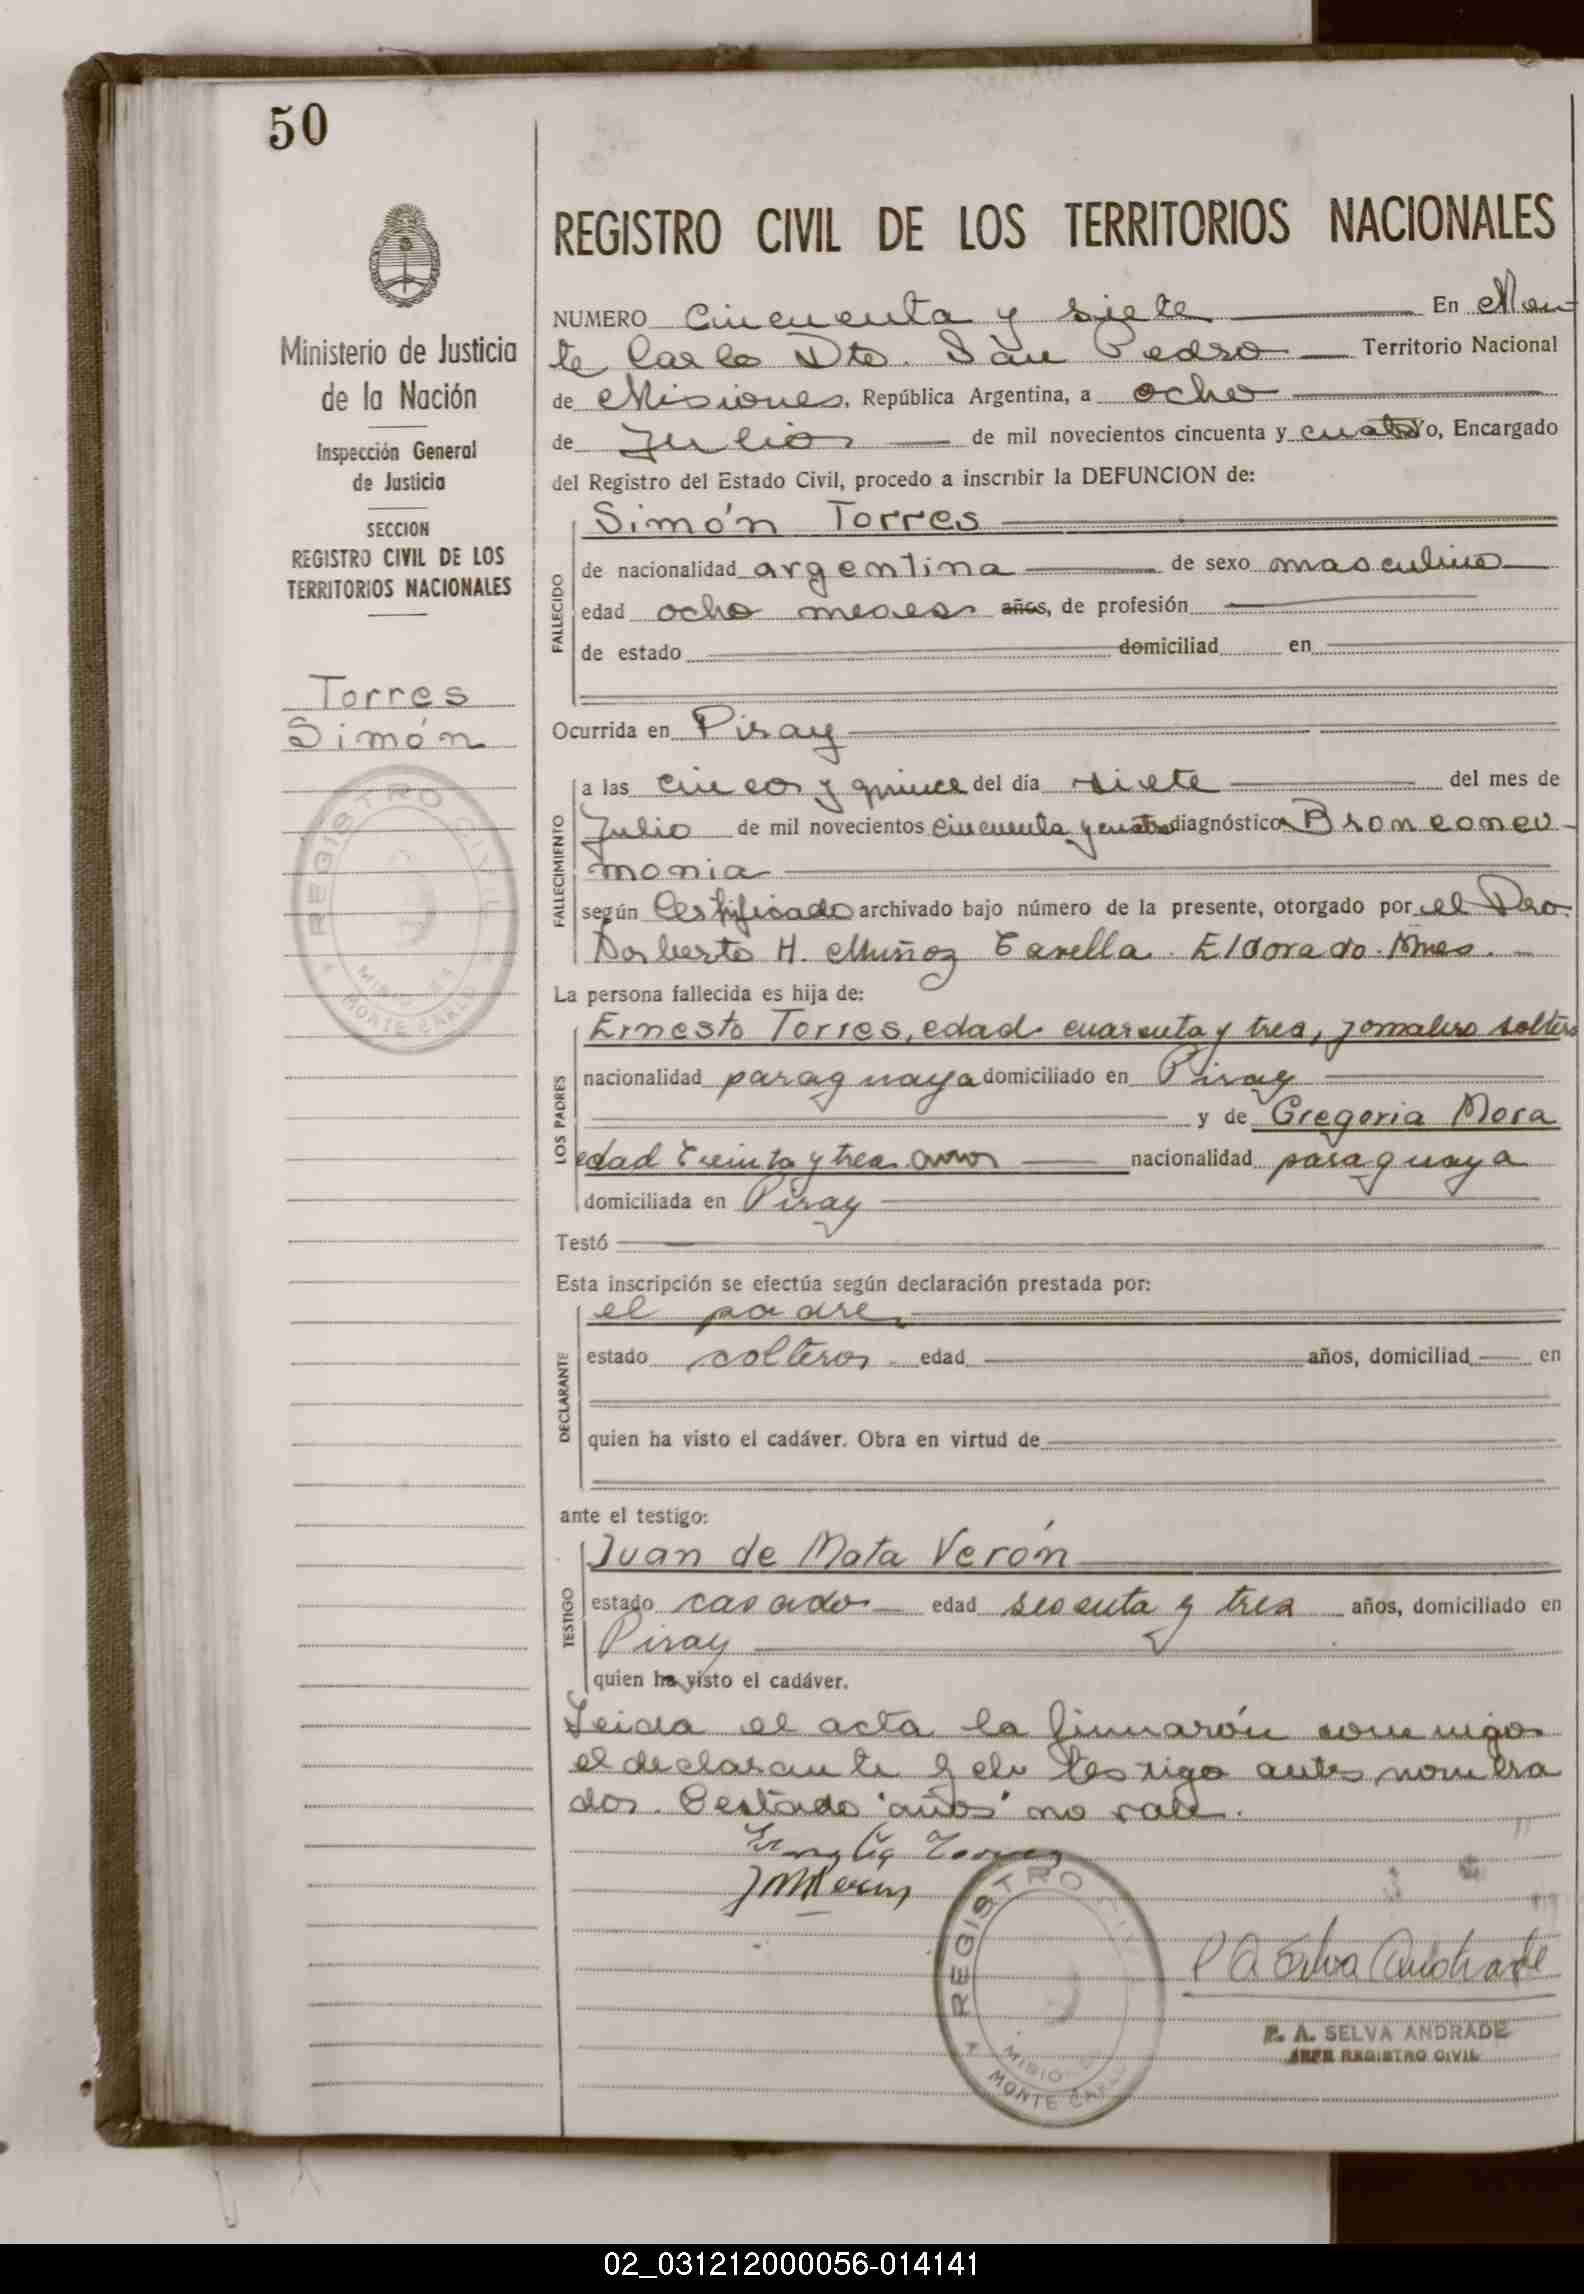 50
Ministerio de Justicia
de la Nación
Inspección General
de Justicia
SECCION
REGISTRO CIVIL DE LOS
TERRITORIOS NACIONALES
Torres
Simón
REGISTRO CIVIL
MONTE CARLO
REGISTRO CIVIL DE LOS TERRITORIOS NACIONALES
NUMERO Cincuenta y siete En Mon-
te Carlo Dto. San Pedro Territorio Nacional
de Misiones, República Argentina, a ocho
de Julio de mil novecientos cincuenta y cuatro Yo, Encargado
del Registro del Estado Civil, procedo a inscribir la DEFUNCION de:
FALLECIDO
Simón Torres
de nacionalidad argentina de sexo masculino
edad ocho meses años, de profesión
de estado domiciliad en
Ocurrida en Piray
FALLECIMIENTO
a las cinco y quince del día siete del mes de
Julio de mil novecientos cincuenta y cuatro diagnóstico Bronconeu-
monia
según Certificado archivado bajo número de la presente, otorgado por el
H. Muñoz Eldorado. Mnes.
La persona fallecida es hija de:
LOS PADRES
Ernesto Torres, edad cuarenta y tres, jornalero soltero
nacionalidad paraguaya domiciliado en Piray
y de Gregoria Mora
edad treinta y tres años nacionalidad paraguaya
domiciliada en Piray
Testó
Esta inscripción se efectúa según declaración prestada por:
DECLARANTE
el padre
estado soltero edad años, domiciliad en
quien ha visto el cadáver. Obra en virtud de
ante el testigo:
TESTIGO
Juan de Mata Verón
estado casado edad sesenta y tres años, domiciliado en
Piray
quien ha visto el cadáver.
Leida el acta la firmarón conmigo
el declarante y el testigo antes nombra
dos. Testado "años" no vale.
REGISTRO CIVIL
MONTE CARLO
P A Selva Andrade
P. A. SELVA ANDRADE
JEFE REGISTRO CIVIL
02_031212000056-014141